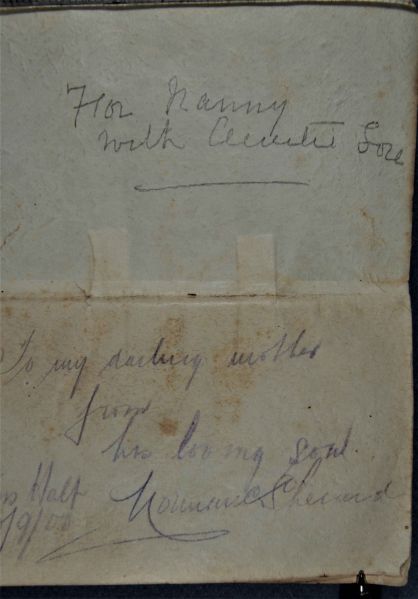 For Nanny
with Auntie's Love
To my darling mother
from
his loving son
Half
Norman
/9/00